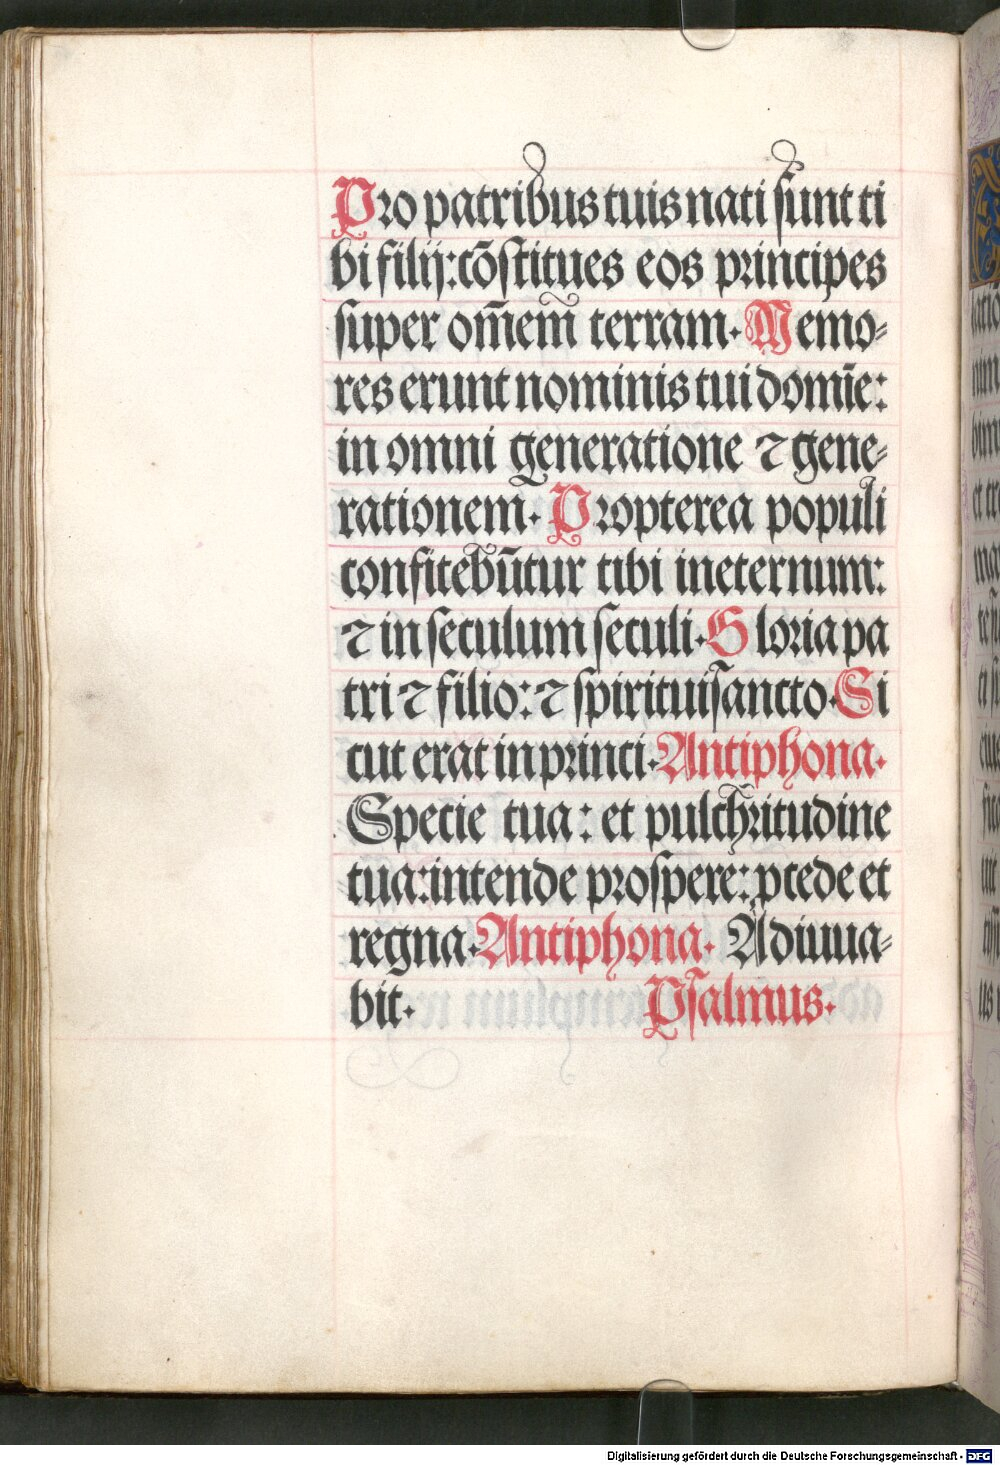 Pro patribus tuis nati sunt ti
bi filij: cõstitues eos principes
super om̄em terram. Memo⸗
res erunt nominis tui domīe:
in omni generatione ⁊ gene⸗
rationem. Propterea populi
confitebūtur tibi ineternum:
⁊ in seculum seculi. Gloria pa
tri ⁊ filio: ⁊ spiritui sancto. Si
cut erat in princi. Antiphona.
Specie tua: et pulchritudine
tua: intende prospere: ꝓcede et
regna. Antiphona. Adiuua⸗
bit. Psalmus.
Digitalisierung gefördert durch die Deutsche Forschungsgemeinschaft - DFG